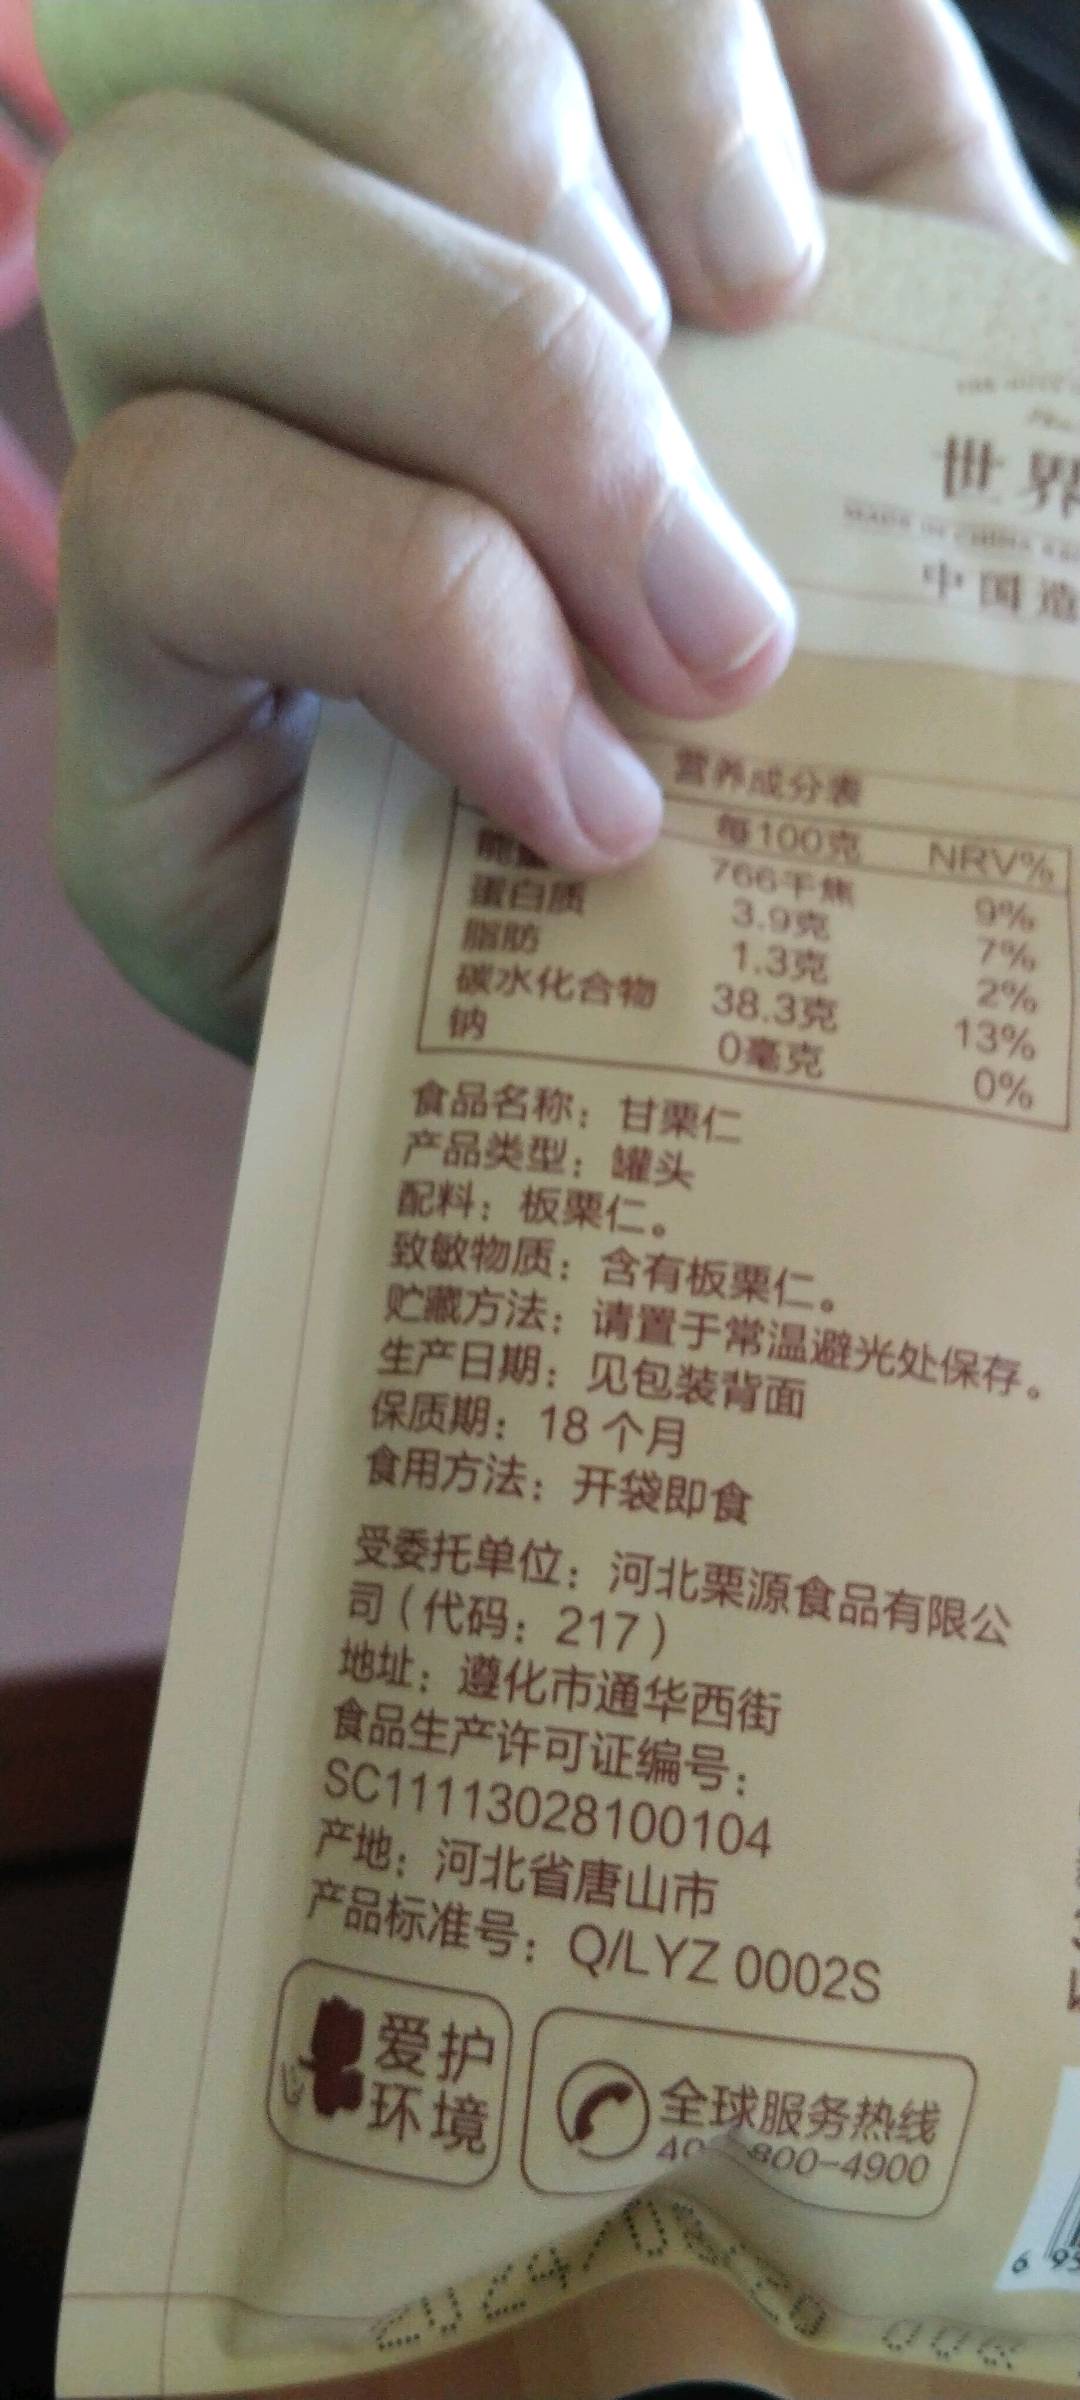 世界
MADE IN CHINA
中国造
营养成分表
每100克 NRV%
能量 766千焦 9%
蛋白质 3.9克 7%
脂肪 1.3克 2%
碳水化合物 38.3克 13%
钠 0毫克 0%
食品名称：甘栗仁
产品类型：罐头
配料：板栗仁。
致敏物质：含有板栗仁。
贮藏方法：请置于常温避光处保存。
生产日期：见包装背面
保质期：18个月
食用方法：开袋即食
受委托单位：河北栗源食品有限公
司（代码：217）
地址：遵化市通华西街
食品生产许可证编号：
SC11113028100104
产地：河北省唐山市
产品标准号：Q/LYZ 0002S
爱护
环境
全球服务热线
800-4900
6 95